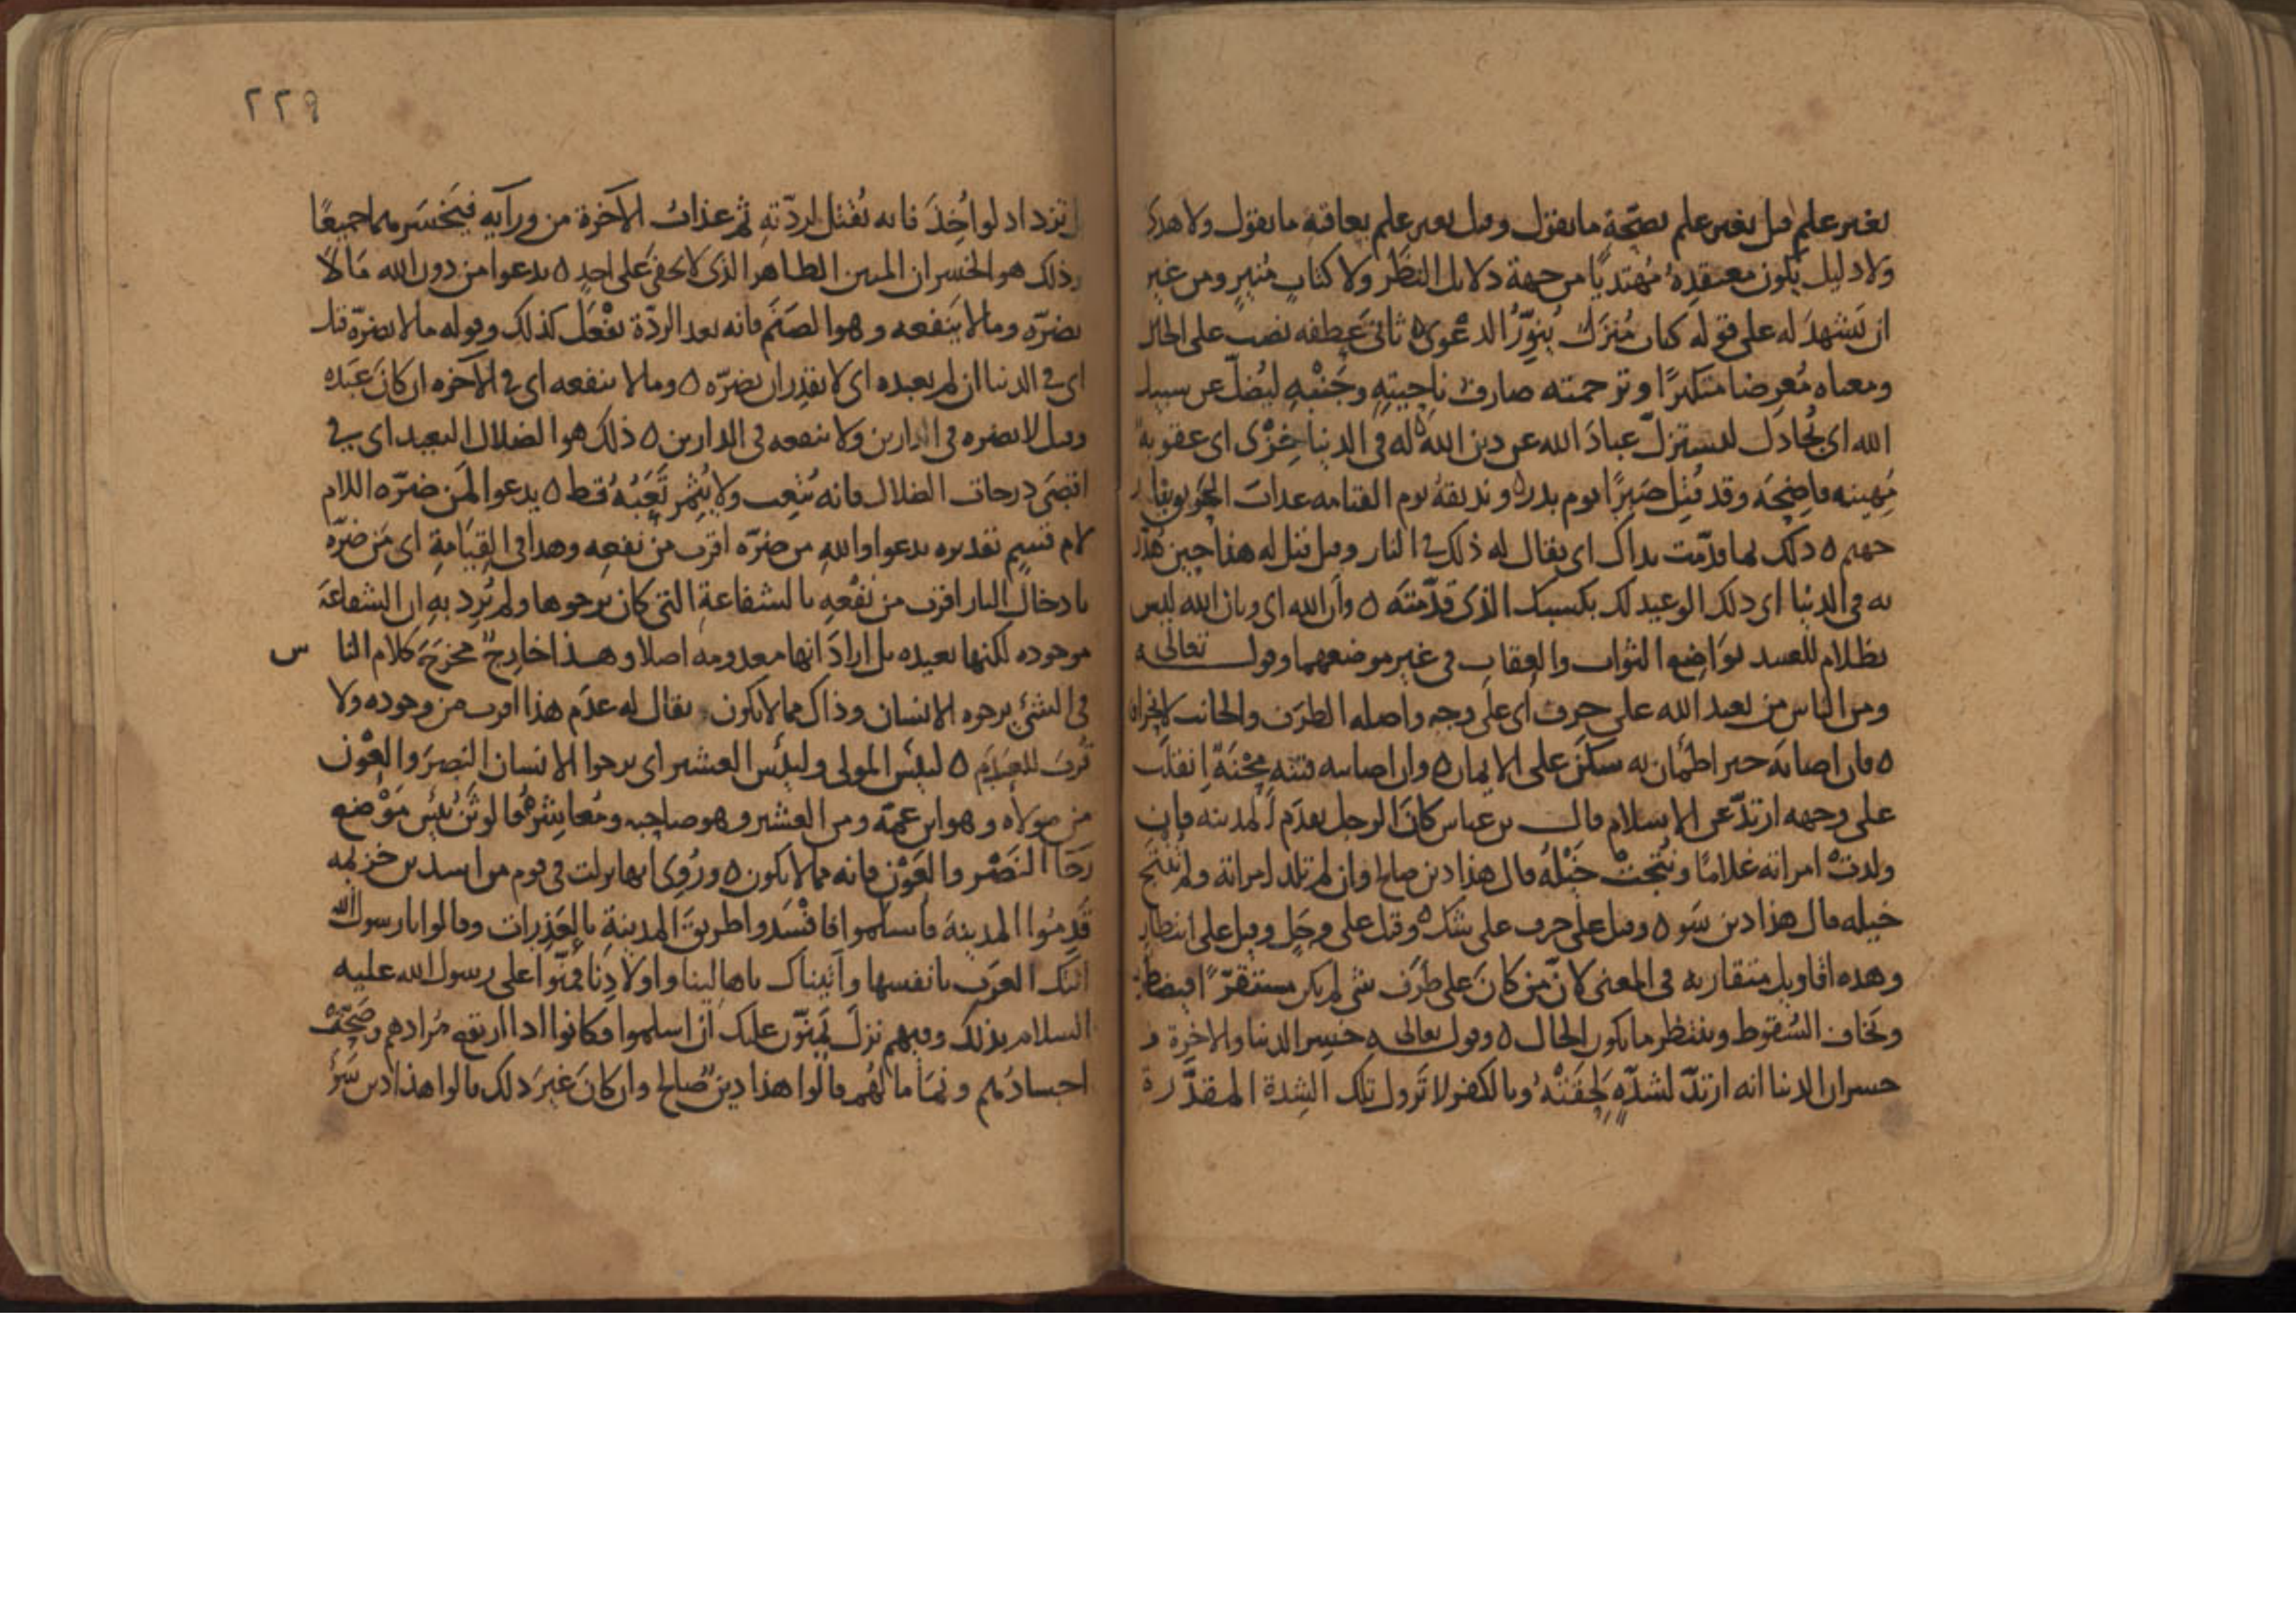 بغير علم قيل بغير علم بصحّة ما يقول وقيل بغير علم بعاقبة ما يقول ولا هدى
ولا دليل يكون معتقده مهتديًا من جهة دلايل النظر ولا كتاب منير ومن غير
ان يشهد له على قوله كتاب مُنزَل يُنوّر الدعوى ه ثاني عطفه نصب على الحال
ومعناه مُعرضا متكبرًا وترجمته صارف ناحيته وجنبه ليُضلّ عن سبيل
الله اى يُجادل ليستزلّ عبادَ الله عن دين الله ه له في الدنيا خزى اى عقوبة
مُهينه فاضحَة وقد قُتل صَبرًا يوم بدر ه ونذيقه يوم القيامه عذاب الحريق
جهنم ه ذلك بما قدّمت يداك اى يقال له ذلك في النار وقيل قيل له هذا حين
به في الدنيا اى ذلك الوعيد لك بكسبك الذى قدّمتَه ه وأن الله اى وبان الله ليس
بظلام للعبيد بواضع الثواب والعقاب في غير موضعهما وقوله تعالى ه
ومن الناس من يعبد الله على حرف اى على وجه واصله الطرَف والجانب
ه فان اصابه خير اطمأن به سكنَ على الايمان ه وان اصابته فتنه مِحْنَة انقلب
على وجهه ارتدّ عن الاسلام قال بن عباس كان الرجل يقدَم المدينه فان
ولدت امراته غلامًا ونُتجت خيله قال هذا دين صالح وان لم تلد امراته ولم تنتج
خيله قال هذا دين سَو ه وقيل على حرف على شك ه وقيل على وجَلٍ وقيل على انتظار
وهذه اقاويل متقاربه في المعنى لانّ من كانَ على طرَف شى لم يكن مستقرًّا
ويخاف السُقوط وينتظر ما يكون الحال ه وقول تعالى ه خسر الدنيا والاخرة
خسران الدنيا انه ارتدّ لشدّه لَحِقَتْهُ وبالكفر لا تزول تلك الشدة المقدّرة
بل تزداد لو اُخِذَ فانه يُقتل لردّتهِ ثم عذابُ الآخرة من ورآيه فيَخسَرهما جميعًا
ذلك هو الخسران المبين الظاهر الذى لا يخفى على احدٍ ه يدعوا من دون الله مَا لا
يضرّه وما لا ينفعه وهو الصَنَم فانه بعد الردّة يفْعَل كذلك وقوله ما لا يضرّه قيل
اى في الدنيا ان لم يعبده اى لا يقدِر ان يضرّه ه وما لا ينفعه اى في الآخره ان كانَ عَبَده
وقيل لا يضره في الدارين ولا ينفعه في الدارين ه ذلك هو الضلال البعيد اى في
اقصَى درجات الضلال فانه يُتعِب ولا يُثمِر تَعَبُهُ قط ه يدعوا لَمن ضرّه اللام
لام قسمٍ تقديره يدعوا واللهِ من ضرّه اقرب من نفعِه وهذا في القِيَامةِ اى مَن ضرّه
بادخال النار اقرب من نَفْعهِ بالشفاعةِ التى كان يرجوها ولم يُرِد بهِ ان الشفاعَة
موجوده لكنها بعيده بل ارادَ انها معدومه اصلا وهذا خارِجٌ مخرَجَ كلام الناس
في الشئِ يرجوه الانسان وذاك مما لا يكون يقال له عدَم هذا اقرب من وجوده ولا
قربَ للعَدَم ه لبئس المولى ولبئس العشير اى يرجوا الانسان النصرَ والعَوْن
من مولاه وهو ابن عمّه ومن العشير وهو صاحبه ومُعاشرُه فالوثَنُ بئس مَوْضع
رجَا النَصْر والعَوْن فانه مما لا يكون ه ورُوِى انها نزلت في قوم من اسد بن خزيمه
قَدِمُوا المدينةَ فاسلموا فافسَدوا طريقَ المدينةِ بالعَذِرات وقالوا يا رسول الله
اتتك العرَب بانفسها واتيناك باهالينا واولادِنا فمنّوا على رسول الله عليه
السلام بذلك وفيهم نزلَ يَمنّون عليك أن اسلموا وكانوا اذا اريفع مُرادهم وصَحّت
اجسادُهم ونمَا مالُهُم قالوا هذا دينٌ صالح وان كانَ غير ذلك قالوا هذا دين سَوْ